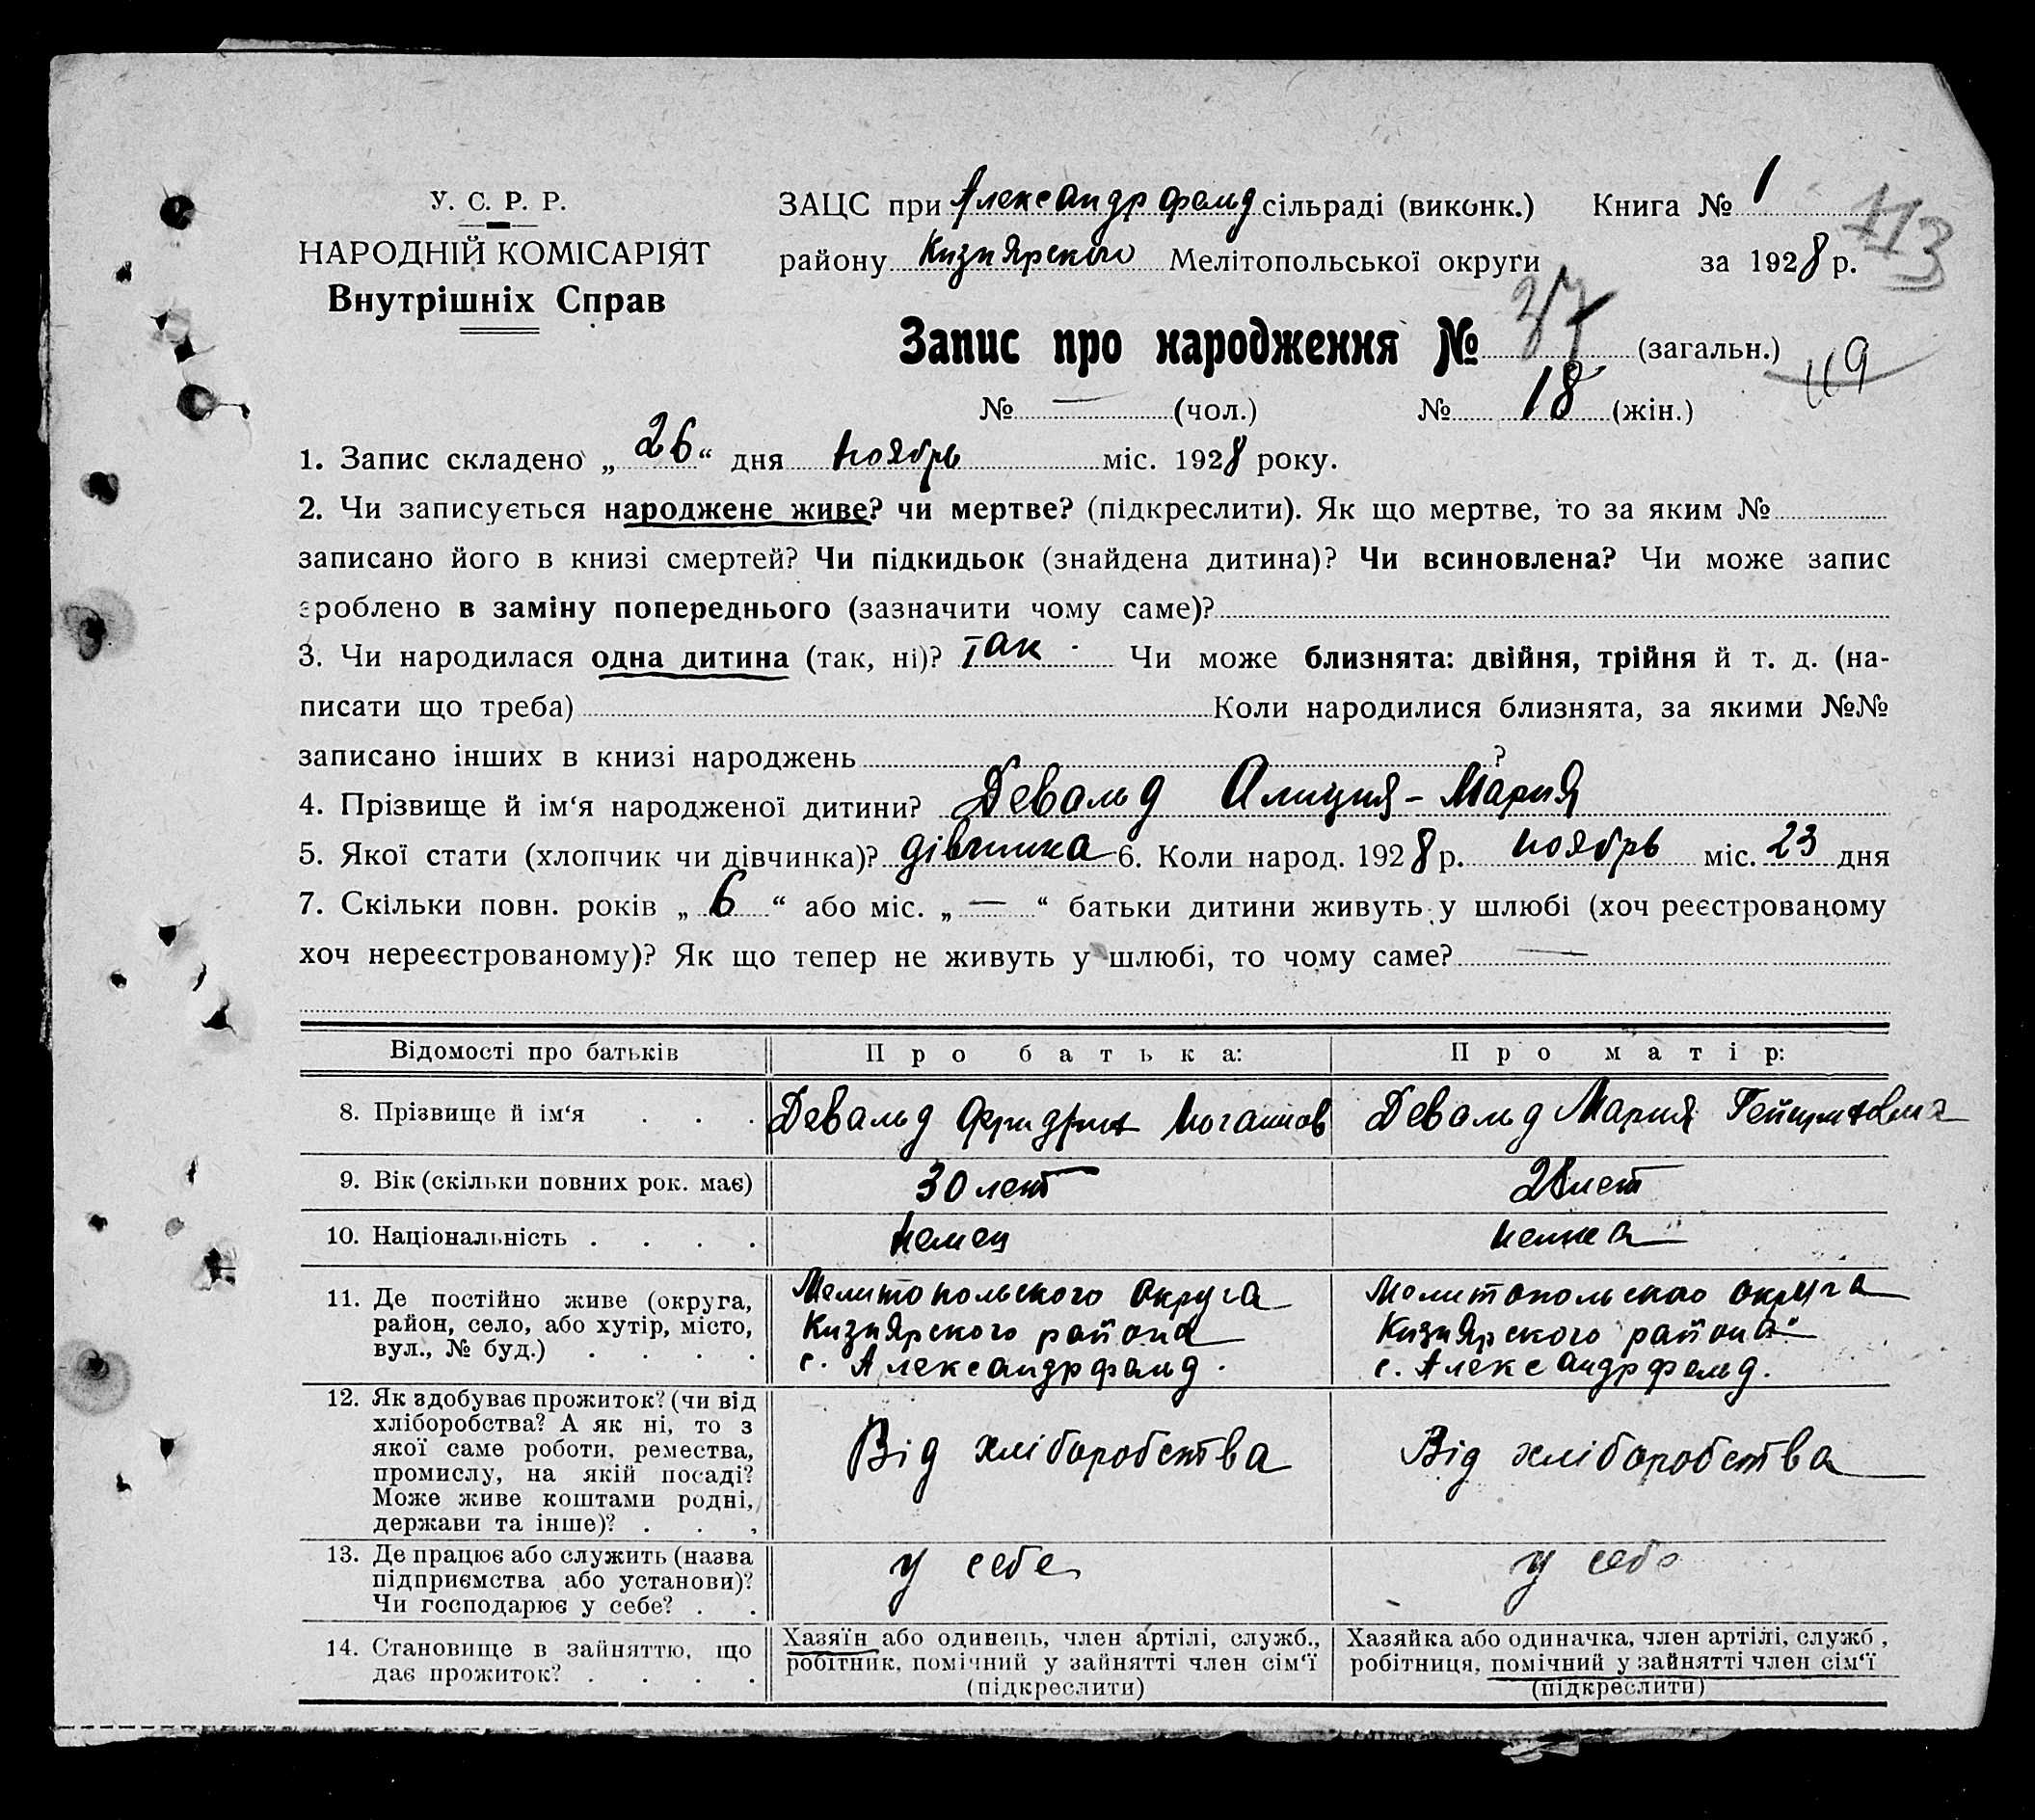 У. С. Р. Р.
НАРОДНІЙ КОМІСАРІЯТ
Внутрішніх Справ
ЗАЦС при Александрфельд сільраді (виконк.) Книга № 1
113
району Кизиярского Мелітопольської округи за 1928 р.
Запис про народження № 37 (загальн.)
119
№ — (чол.) № 18 (жін.)
1. Запис складено „26“ дня ноябрь міс. 1928 року.
2. Чи записується народжене живе? чи мертве? (підкреслити). Як що мертве, то за яким №
записано його в книзі смертей? Чи підкидьок (знайдена дитина)? Чи всиновлена? Чи може запис
зроблено в заміну попереднього (зазначити чому саме)?
3. Чи народилася одна дитина (так, ні)? Так. Чи може близнята: двійня, трійня й т. д. (на-
писати що треба) Коли народилися близнята, за якими №№
записано інших в книзі народжень ?
4. Прізвище й ім‘я народженої дитини? Девальд Алиция-Мария
5. Якої стати (хлопчик чи дівчинка)? дівчинка 6. Коли народ. 1928 р. ноябрь міс. 23 дня
7. Скільки повн. років „6“ або міс. „—“ батьки дитини живуть у шлюбі (хоч реєстрованому
хоч нереєстрованому)? Як що тепер не живуть у шлюбі, то чому саме? —
Відомості про батьків
Про батька:
Про матір:
8. Прізвище й ім‘я . . .
Девальд Фридрих Иоганнов
Девальд Мария
9. Вік (скільки повних рок. має)
30 лет
28 лет
10. Національність . . . .
немец
немка
11. Де постійно живе (округа,
район, село, або хутір, місто,
вул., № буд.) . . . .
Мелитопольского округа
Кизиярского района
с. Александрфельд.
Мелитопольского округа
Кизиярского района
с. Александрфельд.
12. Як здобуває прожиток? (чи від
хліборобства? А як ні, то з
якої саме роботи, ремества,
промислу, на якій посаді?
Може живе коштами родні,
держави та інше)? . . .
Від хліборобства
Від хліборобства
13. Де працює або служить (назва
підприємства або установи)?
Чи господарює у себе? . .
у себе
у себе
14. Становище в зайняттю, що
дає прожиток? . . . .
Хазяїн або одинець, член артілі, служб.,
робітник, помічний у зайнятті член сім‘ї
(підкреслити)
Хазяйка або одиначка, член артілі, служб,
робітниця, помічний у зайнятті член сім‘ї
(підкреслити)